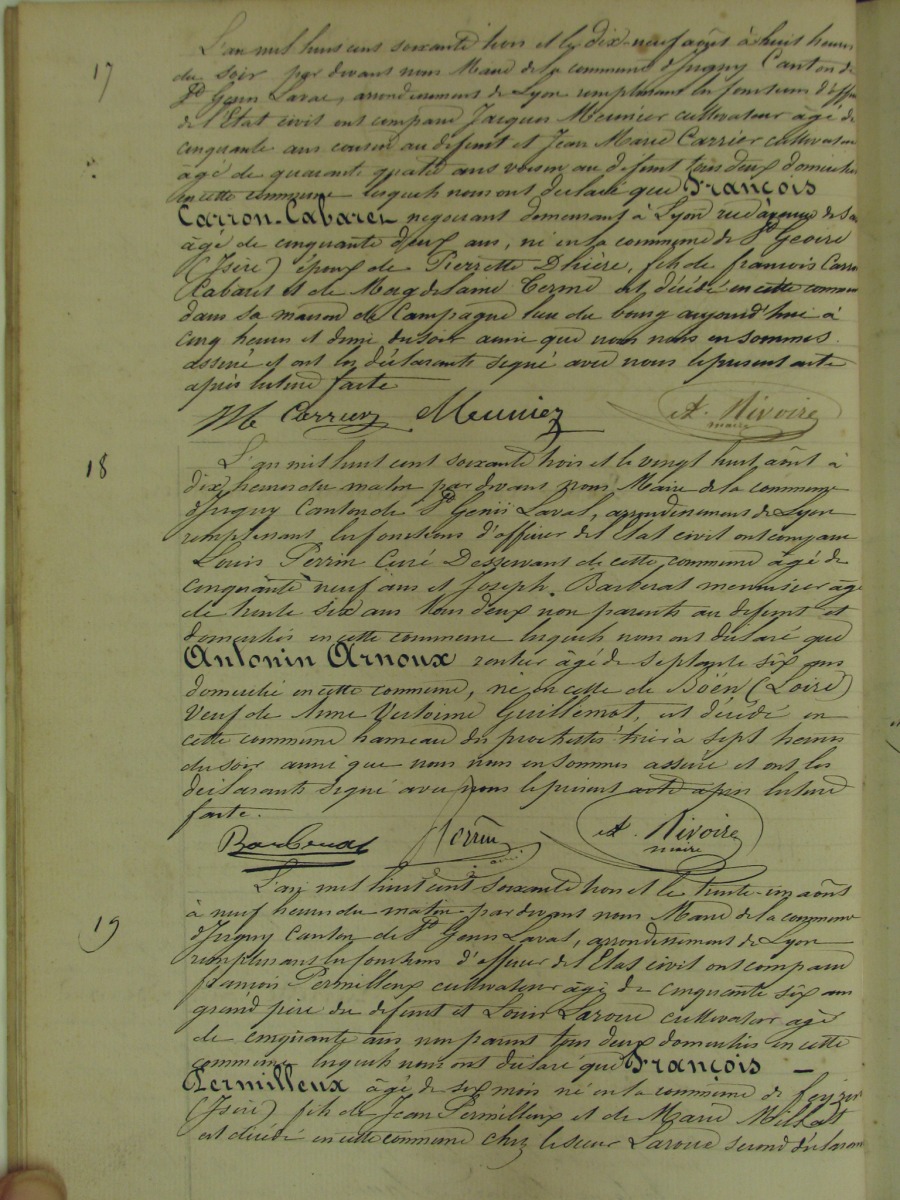 17
L'an mil huit cent soixante trois et le dix-neuf août à huit heures
du soir par devant nous Maire de la commune d'Irigny Canton de
St Genis Laval, arrondissement de Lyon remplissant les fonctions d'offi
de l'Etat civil ont comparu Jacques Meunier cultivateur âgé de
cinquante ans cousin au defunt et Jean Marie Carrier cultivateur
âgé de quarante quatre ans voisin au defunt tous deux domiciliés
en cette commune lesquels nous ont declaré que François
Carron-Cabaret negociant demeurant à Lyon rue
âgé de cinquante deux ans, né en la commune de St Geoire
(Isère) époux de Pierrette Dhière, fils de françois Carron
Cabaret et de Magdelaine Termé est décédé en cette commune
dans sa maison de Campagne lieu du bourg aujourd'hui à
cinq heures et demi du soir ainsi que nous nous en sommes
assuré et ont les déclarants signé avec nous le present acte
après lecture faite
M Carrier Meunier A. Rivoire
maire
18
L'an mil huit cent soixante trois et le vingt huit août à
dix heures du matin par devant nous Maire de la commune
d'Irigny Canton de St Genis Laval, arrondissement de Lyon
remplissant les fonctions d'officier de l'Etat civil ont comparu
Louis Perrin Curé Desservant de cette commune âgé de
cinquante neuf ans et Joseph Barberat menuisier âgé
de trente six ans tous deux non parents au defunt et
domiciliés en cette commune lesquels nous ont declaré que
Antonin Arnoux rentier âgé de septante six ans
domicilié en cette commune, né en celle de Böen (Loire)
Veuf de Anne Victoire Guillemot, est décédé en
cette commune hameau des hier à sept heures
du soir ainsi que nous nous en sommes assuré et ont les
déclarants signé avec nous le présent acte apres lecture
faite.
Barberat Perrin A. Rivoire
maire
19
L'an mil huit cent soixante trois et le trente-un août
à neuf heures du matin par devant nous Maire de la commune
d'Irigny Canton de St Genis Laval, arrondissement de Lyon
remplissant les fonctions d'officier de l'Etat civil ont comparu
françois Permilleux cultivateur âgé de cinquante six ans
grand père du defunt et Louis Laroue cultivateur âgé
de cinquante ans non parent tous deux domiciliés en cette
commune lesquels nous ont déclaré que François –
Permilleux âgé de six mois né en la commune de feyzin
(Isère) fils de Jean Permilleux et de Marie Milhat
est décédé en cette commune chez le sieur Laroue second déclarant